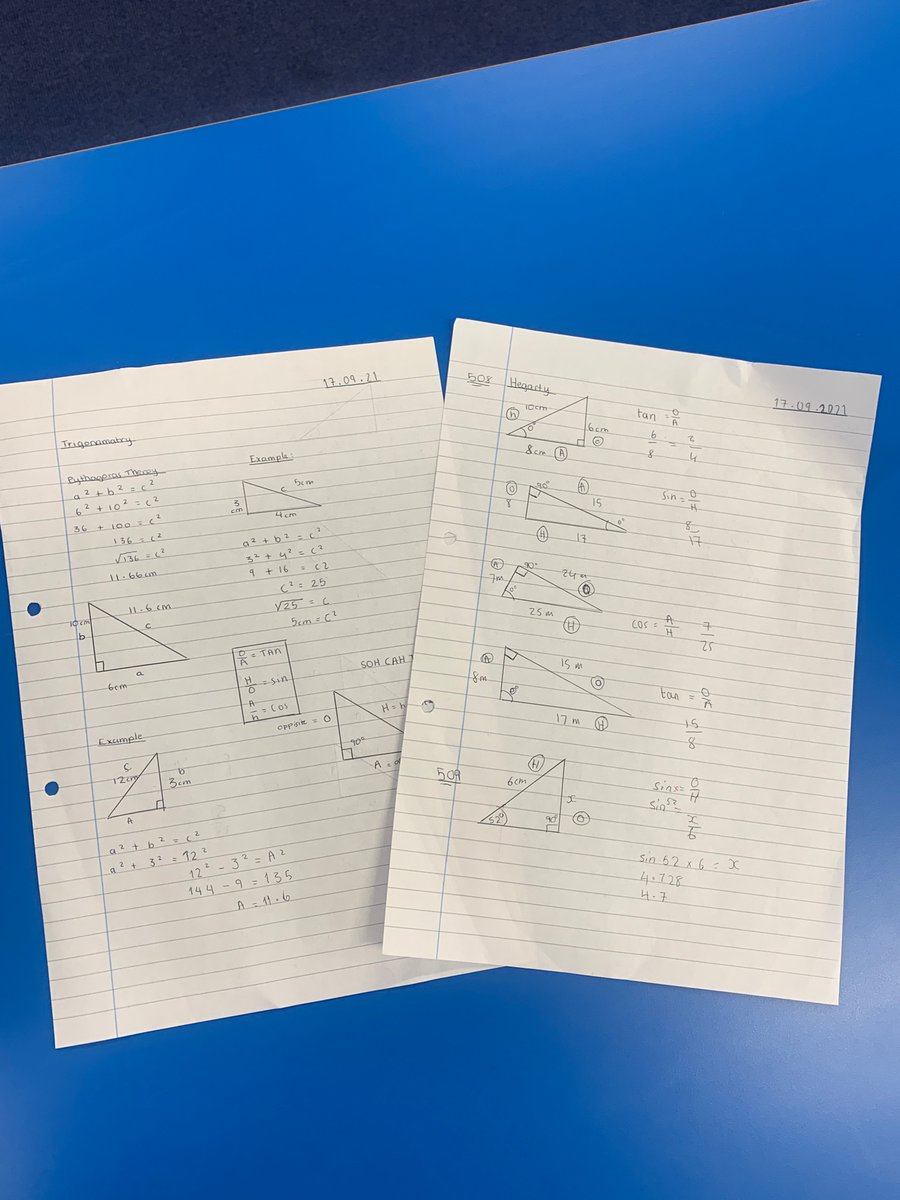 17.09.21
Trigonamatry
Pythagoras Theory
a² + b² = c²
6² + 10² = c²
36 + 100 = c²
136 = c²
√136 = c²
11.66cm
10cm
b
11.6cm
c
a
6cm
Example:
5cm
c
3
cm
4cm
a² + b² = c²
3² + 4² = c²
9 + 16 = c2
c² = 25
√25 = c
5cm = c²
O/A = TAN
H/O = sin
A/h = cos
SOH CAH
opposite = O
H = h
90°
A =
Example
c
12cm
b
3cm
A
a² + b² = c²
a² + 3² = 12²
12² - 3² = A²
144 - 9 = 135
A = 11.6
508 Hegarty
17.09.2021
h
10cm
6cm
O
8cm A
tan = O/A
6/8 = 2/4
O
8
90°
A
15
H
17
sin = O/H
8/17
A
7m
90°
24m
O
25m
H
cos = A/H 7/25
A
8m
15m
O
17m
H
tan = O/A
15/8
509
H
6cm
x
O
52°
90°
sinx = O/H
sin52 = x/6
sin 52 x 6 = x
4.728
4.7